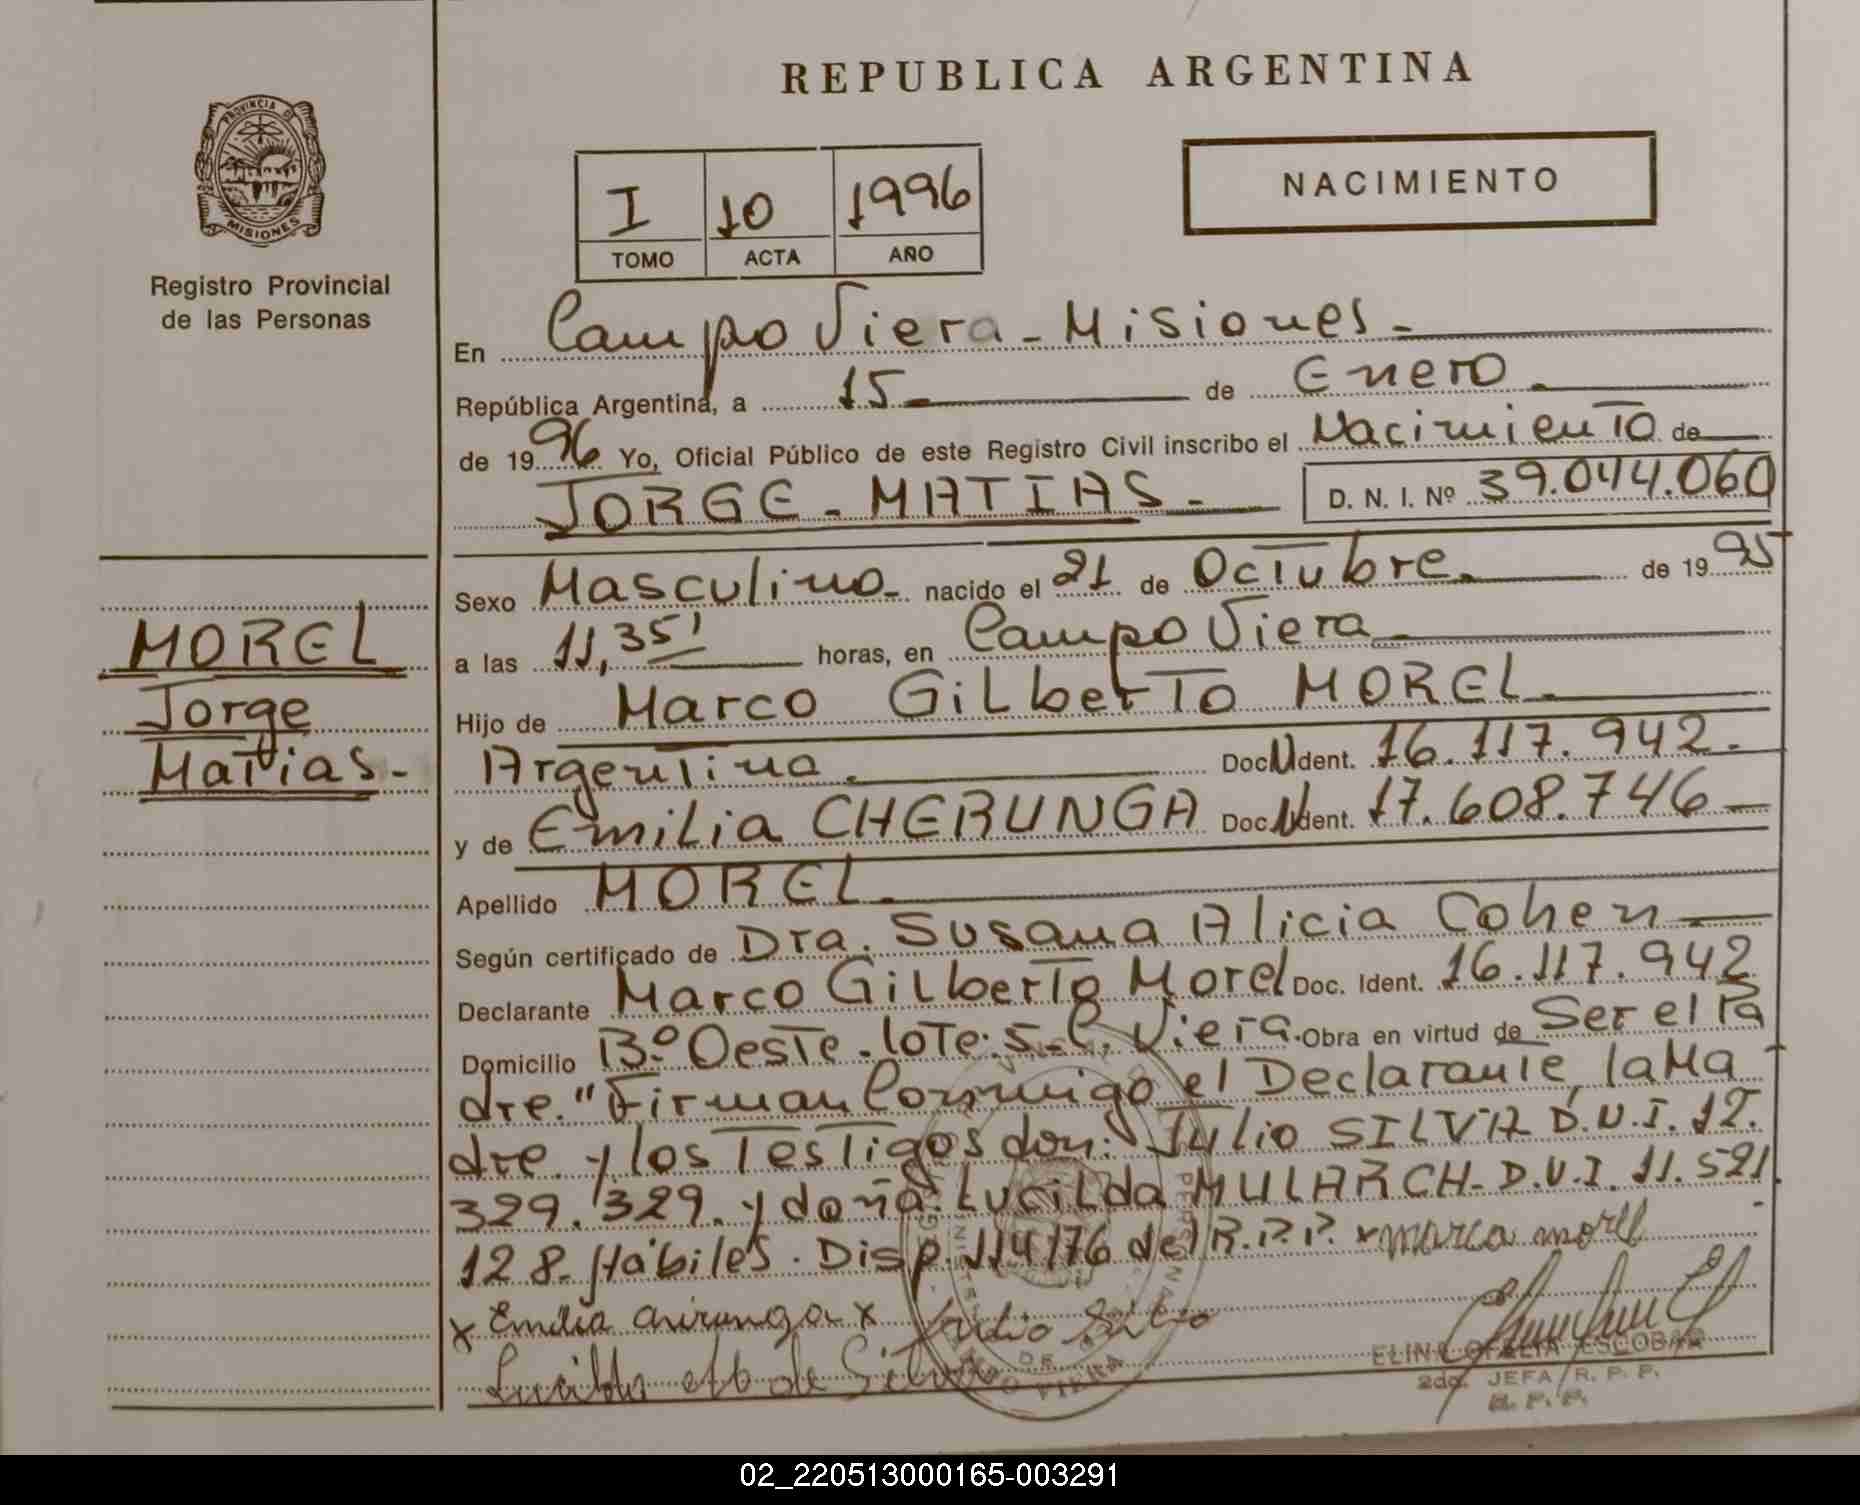 REPUBLICA ARGENTINA
PROVINCIA DE
MISIONES
Registro Provincial
de las Personas
I 10 1996
TOMO ACTA AÑO
NACIMIENTO
En Campo Viera - Misiones -
República Argentina, a 15 - de Enero -
de 1996 Yo, Oficial Público de este Registro Civil inscribo el Nacimiento de
JORGE - MATIAS - D. N. I. Nº 39.044.060
Sexo Masculino - nacido el 21 de Octubre - de 1995
a las 11,35' horas, en Campo Viera -
Hijo de Marco Gilberto MOREL -
Argentina. Doc. Ident. 16.117.942.-
y de Emilia CHERUNGA Doc. Ident. 17.608.746 -
Apellido MOREL -
Según certificado de Dra. Susana Alicia Cohen -
Declarante Marco Gilberto Morel Doc. Ident. 16.117.942
Domicilio Bº Oeste - lote: 5 - C. Viera. Obra en virtud de Ser el Pa
dre. "Firman Conmigo el Declarante, la Ma
dre. y los Testigos don: Julio SILVA D.N.I. 12.
329.329. y doña: Lucilda MULARCH - D.N.I. 11.521.
128 - Hábiles. Disp. 114/76 del R.P.P. x marca morel
x Emilia chirunga x Julio Silva
Lucilda de Silva
ELINA OFALIA ESCOBAR
2da. JEFA / R. P. P.
R. P. P.
MOREL
Jorge
Matias -
02_220513000165-003291